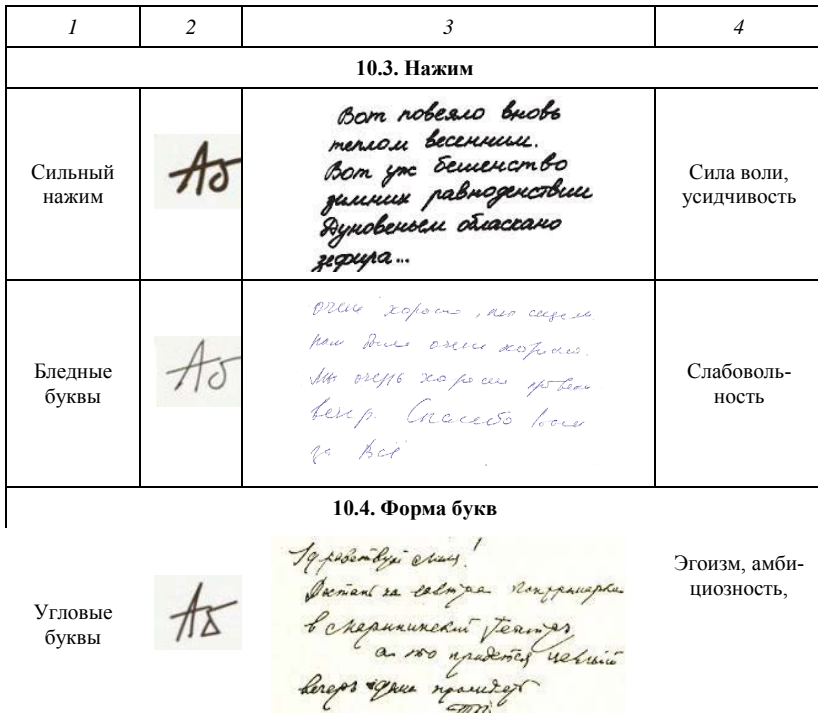 1 2 3 4
10.3. Нажим
Сильный
нажим
Аб
Вот повеяло вновь
теплом весенним.
Вот уж бешенство
зимних равноденствий
Дуновеньем обласкано
зефира...
Сила воли,
усидчивость
Бледные
буквы
Аб
очень хорошо,
нам было очень хорошо.
Мы очень хорошо провели
вечер. Спасибо Вам
за Всё
Слабоволь-
ность
10.4. Форма букв
Угловые
буквы
Аб
Здравствуй !
Достань на завтра
в Мариинский Театръ
а то придется целый
вечеръ дома просидеть
Эгоизм, амби-
циозность,